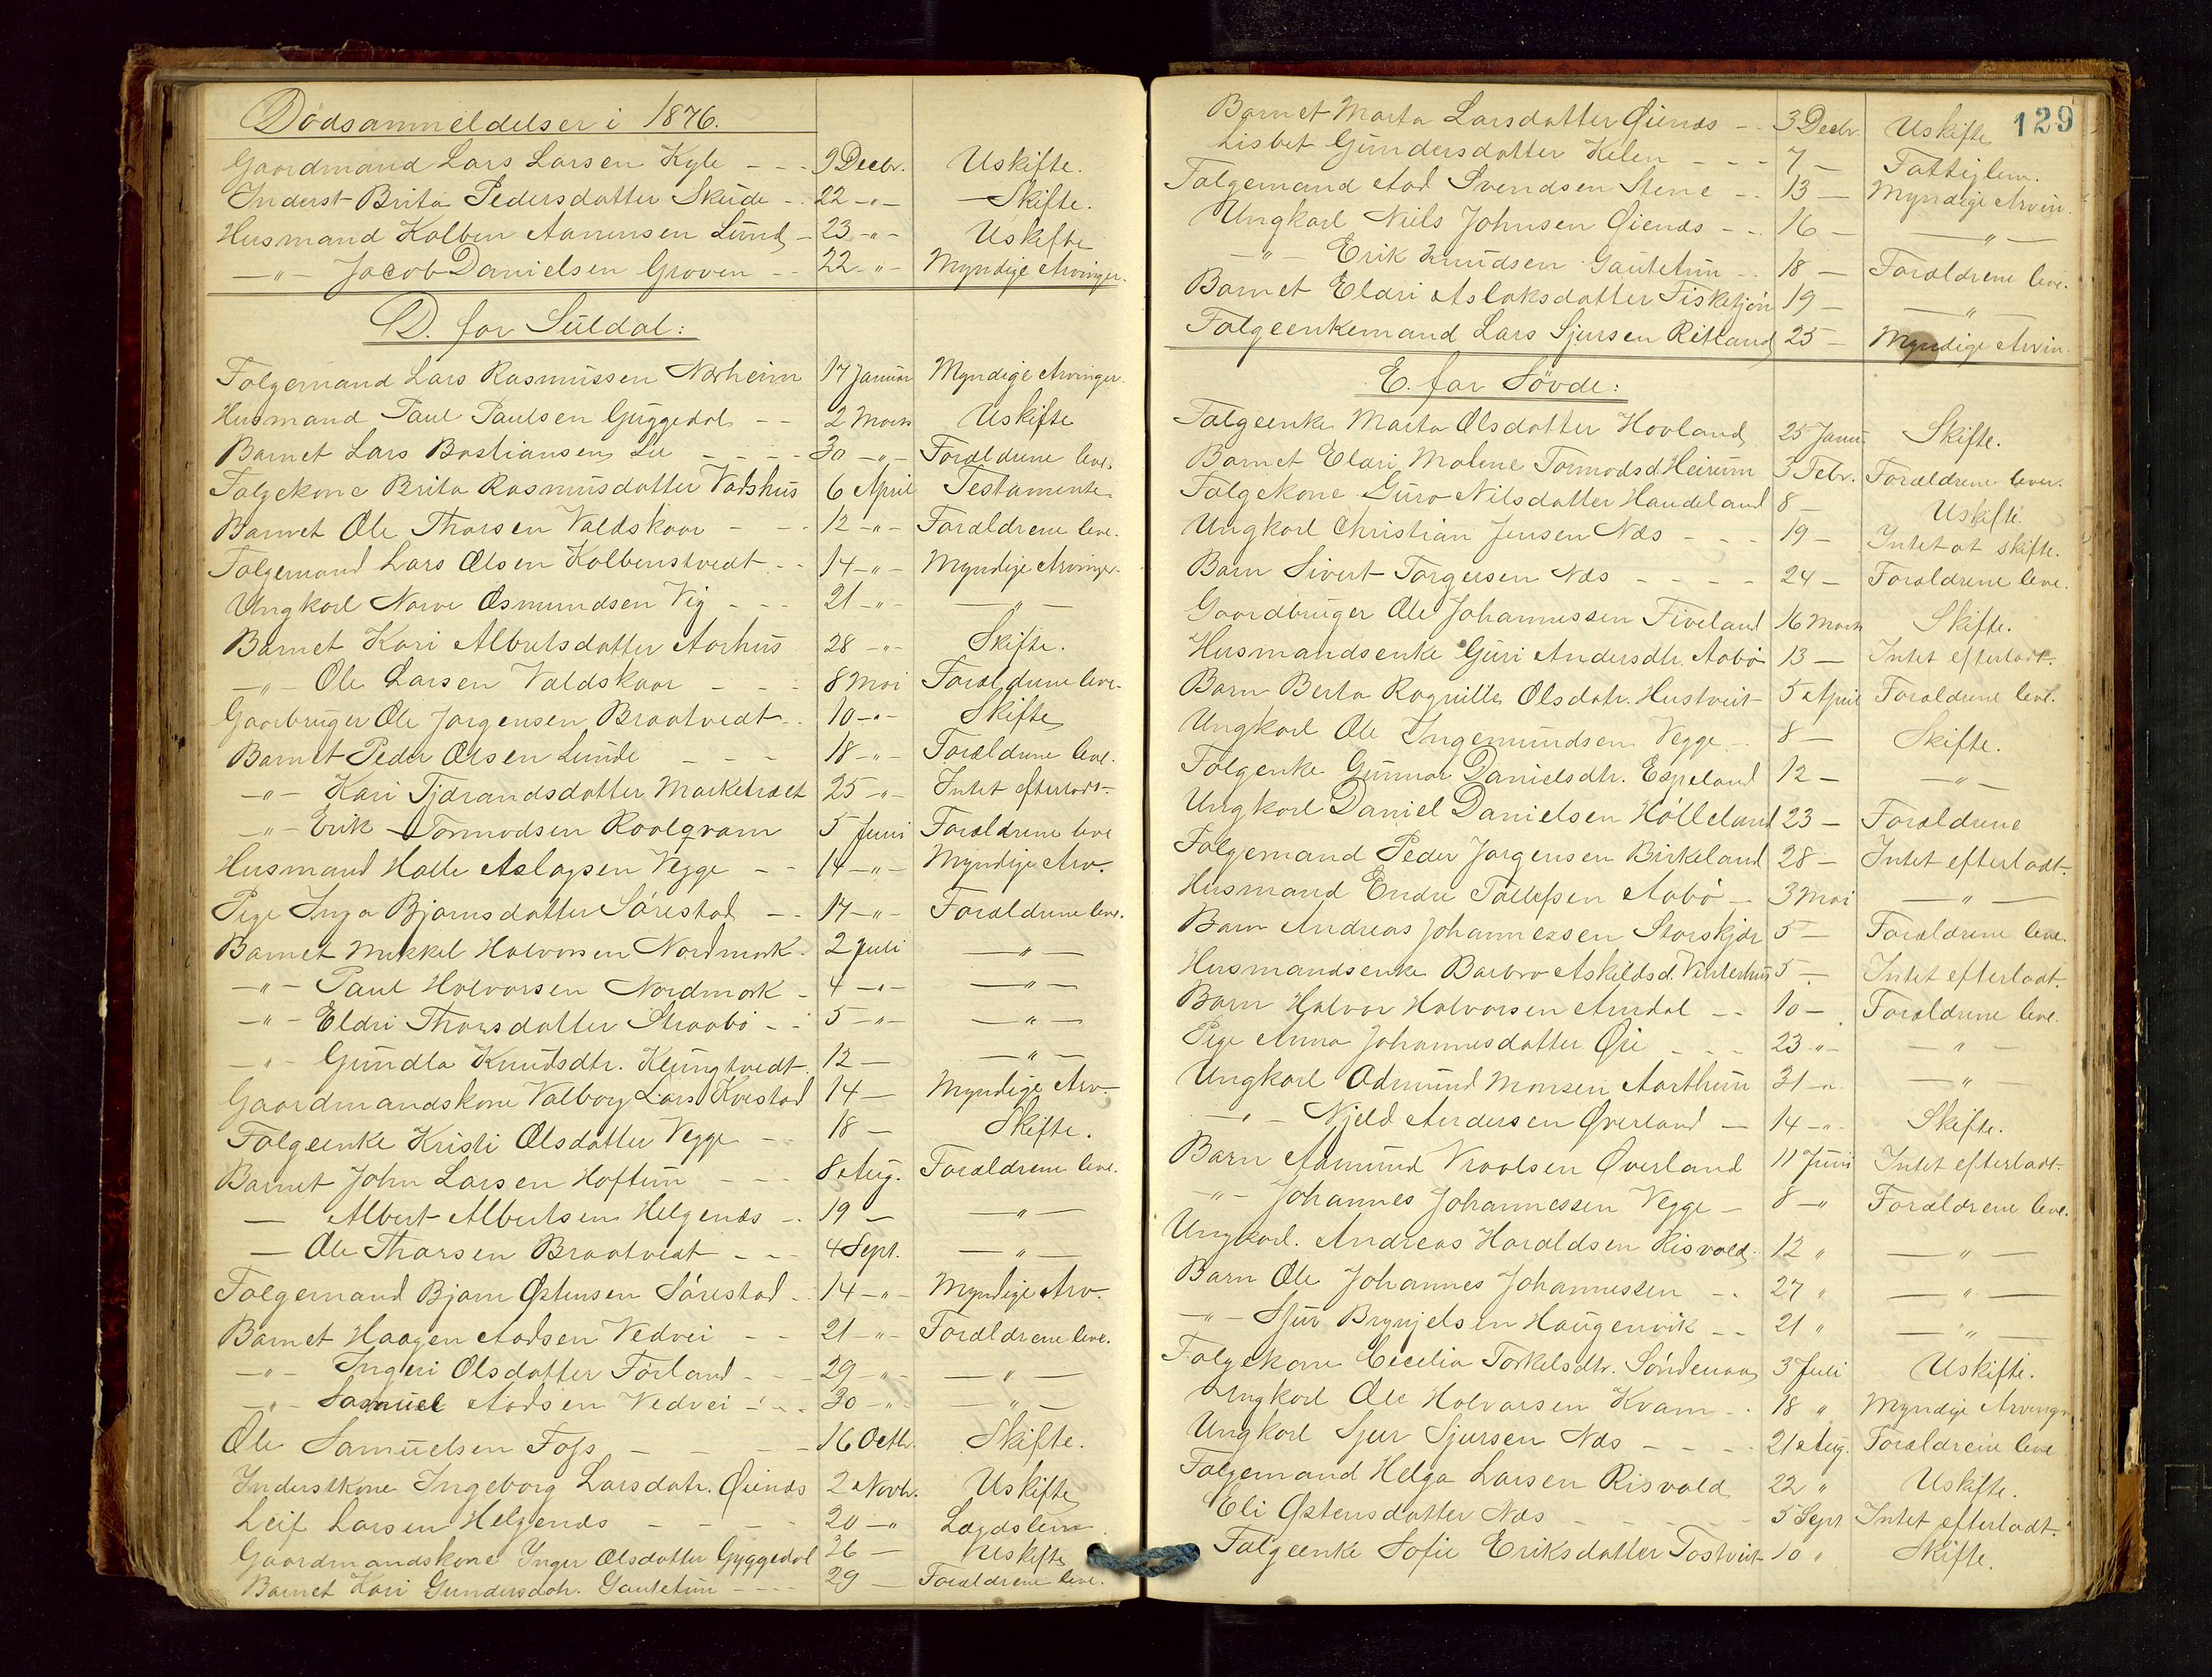 Dödsanmeldelser i 1876.
Gaardmand Lars Larsen Kyle - - - 9 Decbr. Uskifte.
Inderst Brita Pedersdatter Skeide - - 22 -"- Skifte.
Husmand Kolben Aanensen Lund - 23 -"- Uskifte
-"- Jacob Danielsen Groven - - 22 -"- Myndige Arvinger.
D. for Süldal:
Folgemand Lars Rasmussen Nærheim 17 Januar Myndige Arvinger.
Husmand Paul Paulsen Guggedal - - 2 Marts Uskifte
Barnet Lars Bastiansen Lie - - - - 30 -"- Forældrene leve.
Folgekone Brita Rasmusdatter Vatshus 6 April Testamente
Barnet Ole Thorsen Valdskaar - - - 12 -"- Forældrene leve.
Folgemand Lars Olsen Kolbenstvedt - - 14 -"- Myndige Arvinger
Ungkarl Narve Osmundsen Vig - - - 21 -"- - " -
Barnet Kari Albertsdatter Aarhus 28 -"- Skifte.
-"- Ole Larsen Valdskaar - - - 8 Mai Forældrene leve.
Gaarbruger Ole Jorgensen Braatvedt - - 10 -"- Skifte
Barnet Peder Olsen Lunde - - - 18 -"- Forældrene leve.
-"- Kari Tjærandsdatter Marketræet 25 -"- Intet efterladt-
-"- Erik Tormodsen Roalqvam 5 Juni Forældrene leve
Husmand Halle Aslagsen Vegge - - 14 -"- Myndige Arv.
Pige Inga Bjornsdatter Sårestad - - 17 -"- Forældrene leve.
Barnet Mikkel Halvorsen Nordmork - 2 Juli - " -
-"- Paul Halvorsen Nordmork - 4 -"- - " -
-"- Eldri Thorsdatter Straabö - - 5 -"- - " -
-"- Gundla Knudsdtr. Klungtvedt. 12 - - " -
Gaardmandskone Valborg Larsd Kvestad 14 - Myndige Arv-
Folgeenke Kristi Olsdatter Vegge - - 18 - Skifte.
Barnet John Larsen Hoftun - - - 8 Aug. Forældrene leve.
- Albert Albertsen Helgenæs - - 19 - - " -
- Ole Thorsen Braatvedt - - - 4 Sept. - " -
Folgemand Bjorn Østensen Sårestad - - 14 -"- Myndige Arv.
Barnet Haagen Aadsen Vedvei - - 21 -"- Forældrene leve.
-"- Ingeri Olsdatter Forland - - - 29 -"- - " -
-"- Samuel Aadsen Vedvei - - - 30 -"- - " -
Ole Samuelsen Foss - - - - 16 Octbr. Skifte.
Inderstkone Ingeborg Larsdatr. Øienæs 2 Novbr. Uskifte
Leif Larsen Helgenæs - - - - 20 -" Lægdslem
Gaardmandskone Inger Olsdatter Gyggedal 26 - Uskifte
Barnet Kari Gundersdatr. Gautetun - - - 29 - Forældrene leve.
129
Barnet Marta Larsdatter Øienæs - - 3 Decbr. Uskifte
Lisbet Gundersdatter Kelen - - - 7 - Fattiglem.
Folgemand Aad Svendsen Stene - - 13 - Myndige Arvin.
Ungkarl Niels Johnsen Øienæs - - 16 - - " -
-"- Erik Knudsen Gautetun - - 18 - Forældrene leve.
Barnet Eldri Aslaksdatter Fisketjön 19 - - " -
Folgeenkemand Lars Sjursen Ritland 25 - Myndige Arvin
E. for Sövde:
Folgeenke Marta Olsdatter Hovland 25 Janu. Skifte.
Barnet Eldri Malene Tormodsd. Heirum 3 Febr. Forældrene lever.
Folgekone Guro Nilsdatter Handeland 8 - Uskifte.
Ungkarl Christian Jensen Næs - - - 19 - Intet at skifte.
Barn Sivert Torgersen Næs - - - - 24 - Forældrene leve.
Gaardbruger Ole Johannessen Fiveland 16 Marts Skifte.
Husmandsenke Guri Andersdtr. Aabö 13 - Intet efterladt-
Barn Berta Ragnille Olsdatr. Hustveit 5 April Forældrene leve.
Ungkarl Ole Ingemundsen Vegge - - 8 - Skifte.
Folgenke Gunnar Danielsdtr. Espeland 12 - - " -
Ungkarl Daniel Danielsen Hölleland 23 - Forældrene
Folgemand Peder Jorgensen Birkeland 28 - Intet efterladt-
Husmand Endre Tollefsen Aabö - 3 Mai - " -
Barn Andreas Johannessen Storskjær 5 - Forældrene leve.
Husmandsenke Barbro Askildsd. Vinterhus 5 - Intet efterladt.
Barn Halvor Halvorsen Amdal - - 10 - Forældrene leve.
Pige Anna Johannesdatter Øie - - - 23 -"- - " -
Ungkarl Odmund Monsen Aarthun 31 -"- - " -
-"- Njeld Andersen Øverland - 14 -"- Skifte.
Barn Admund Vraalsen Överland 11 Juni Intet efterladt-
-"- Johannes Johannessen Vegge - 8 -" Forældrene leve.
Ungkarl. Andreas Haraldsen Risvold 12 " - " -
Barn Ole Johannes Johannessen - - 27 " - " -
-"- Sjur Brynjelsen Haugenvik - - 21 " - " -
Folgekone Cecilia Torkelsdtr. Söndenaa 3 Juli Uskifte.
Ungkarl Ole Halvorsen Kvam - - 18 " Myndige Arvinger
Ungkarl Sjur Sjursen Næs - - - - 21 Aug. Forældrene leve
Folgemand Helga Larsen Risvold 22 " Uskifte.
Eli Østensdatter Næs - - - - - 5 Sept Intet efterladt-
Folgeenke Sofie Eriksdatter Tostveit 10 " Skifte.